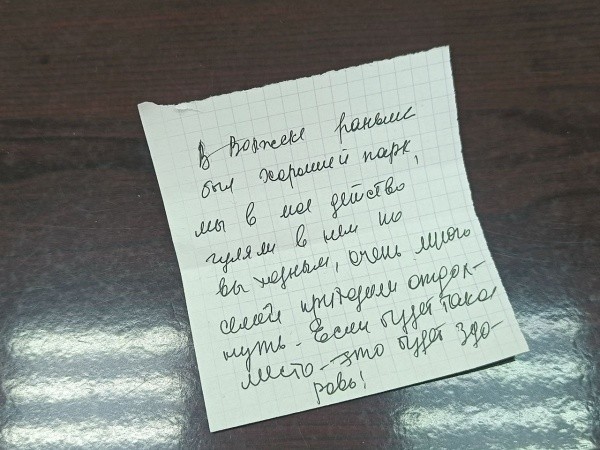 В Волжске раньше
был хороший парк,
мы в мое детство
гуляли в нем по
выходным, очень много
семей приходили отдох-
нуть. Если будет такое
место - это будет здо-
рово!